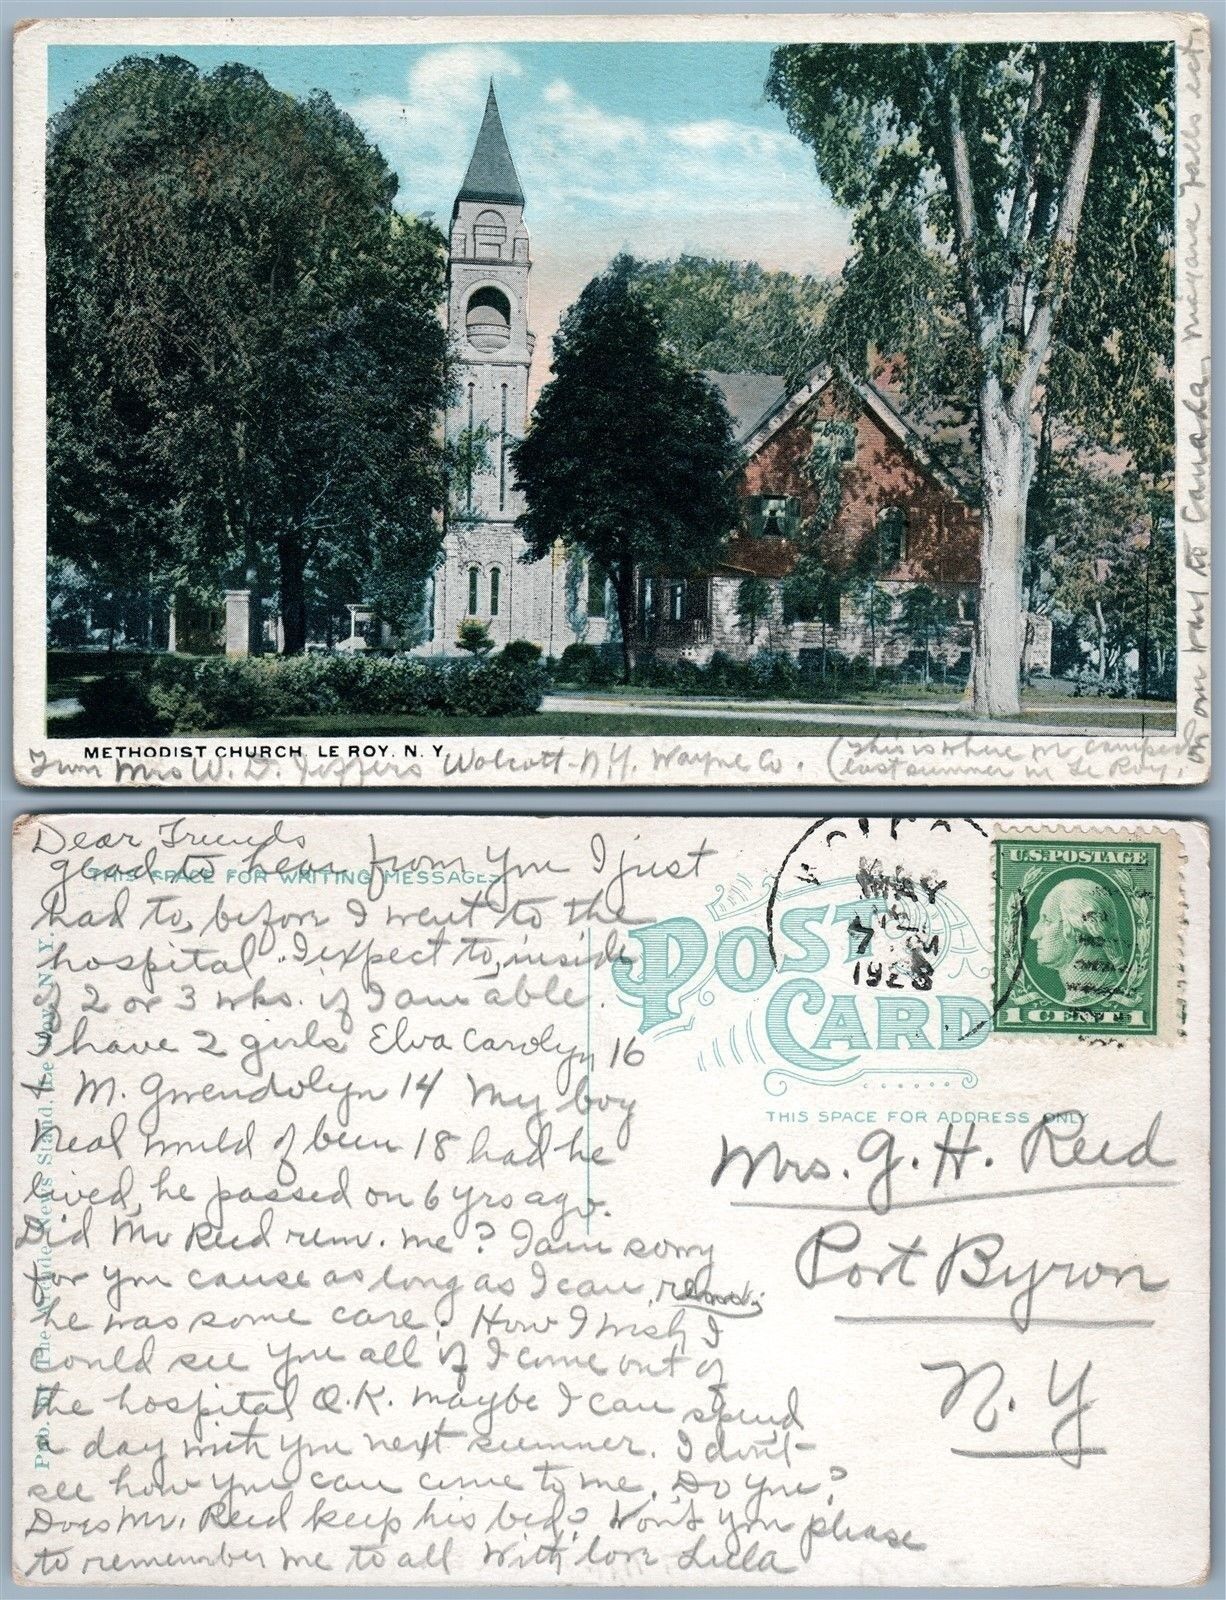 METHODIST CHURCH, LE ROY, N. Y.
From Mrs W. D. Jeffers Wolcott - N.Y. Wayne Co. (This is where we camped
last summer in Le Roy,
on our way to Canada, Niagara Falls ect.
Dear Friends
glad to hear from you I just
THIS SPACE FOR WRITING MESSAGES
had to, before I went to the
hospital. I expect to, inside
of 2 or 3 wks. if I am able.
I have 2 girls Elva Carolyn 16
+ M. Gwendolyn 14 My boy
Neal would of been 18 had he
lived, he passed on 6 yrs ago.
Did Mr Reed rem. me? I am sorry
for you cause as long as I can
he was some care. How I wish I
could see you all if I come out of
the hospital O.K. maybe I can spend
a day with you next summer. I don't
see how you can come to me. Do you?
Does Mr. Reed keep his bed? Won't you please
to remember me to all with love Lula
Pub. by The News Stand, Le Roy, N. Y.
POST
CARD
MAY
7
1928
U.S. POSTAGE
1 CENT 1
THIS SPACE FOR ADDRESS ONLY
Mrs. G. H. Reed
Port Byron
N. Y